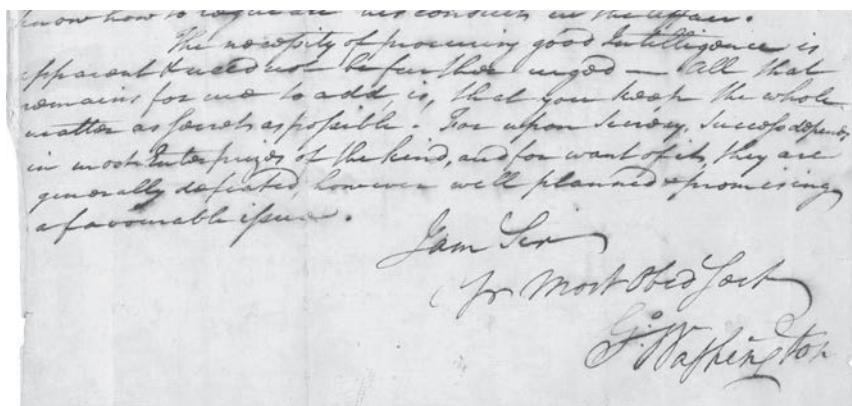 know how to regulate his conduct in the affair.
The necessity of procuring good Intelligence is
apparent & need not be further urged — All that
remains for me to add, is, that you keep the whole
matter as secret as possible. For upon Secrecy, Success depends
in most Enterprizes of the kind, and for want of it, they are
generally defeated, however well planned & promising
a favourable issue.
I am Sir
Yr Most Obed Sert
Go. Washington